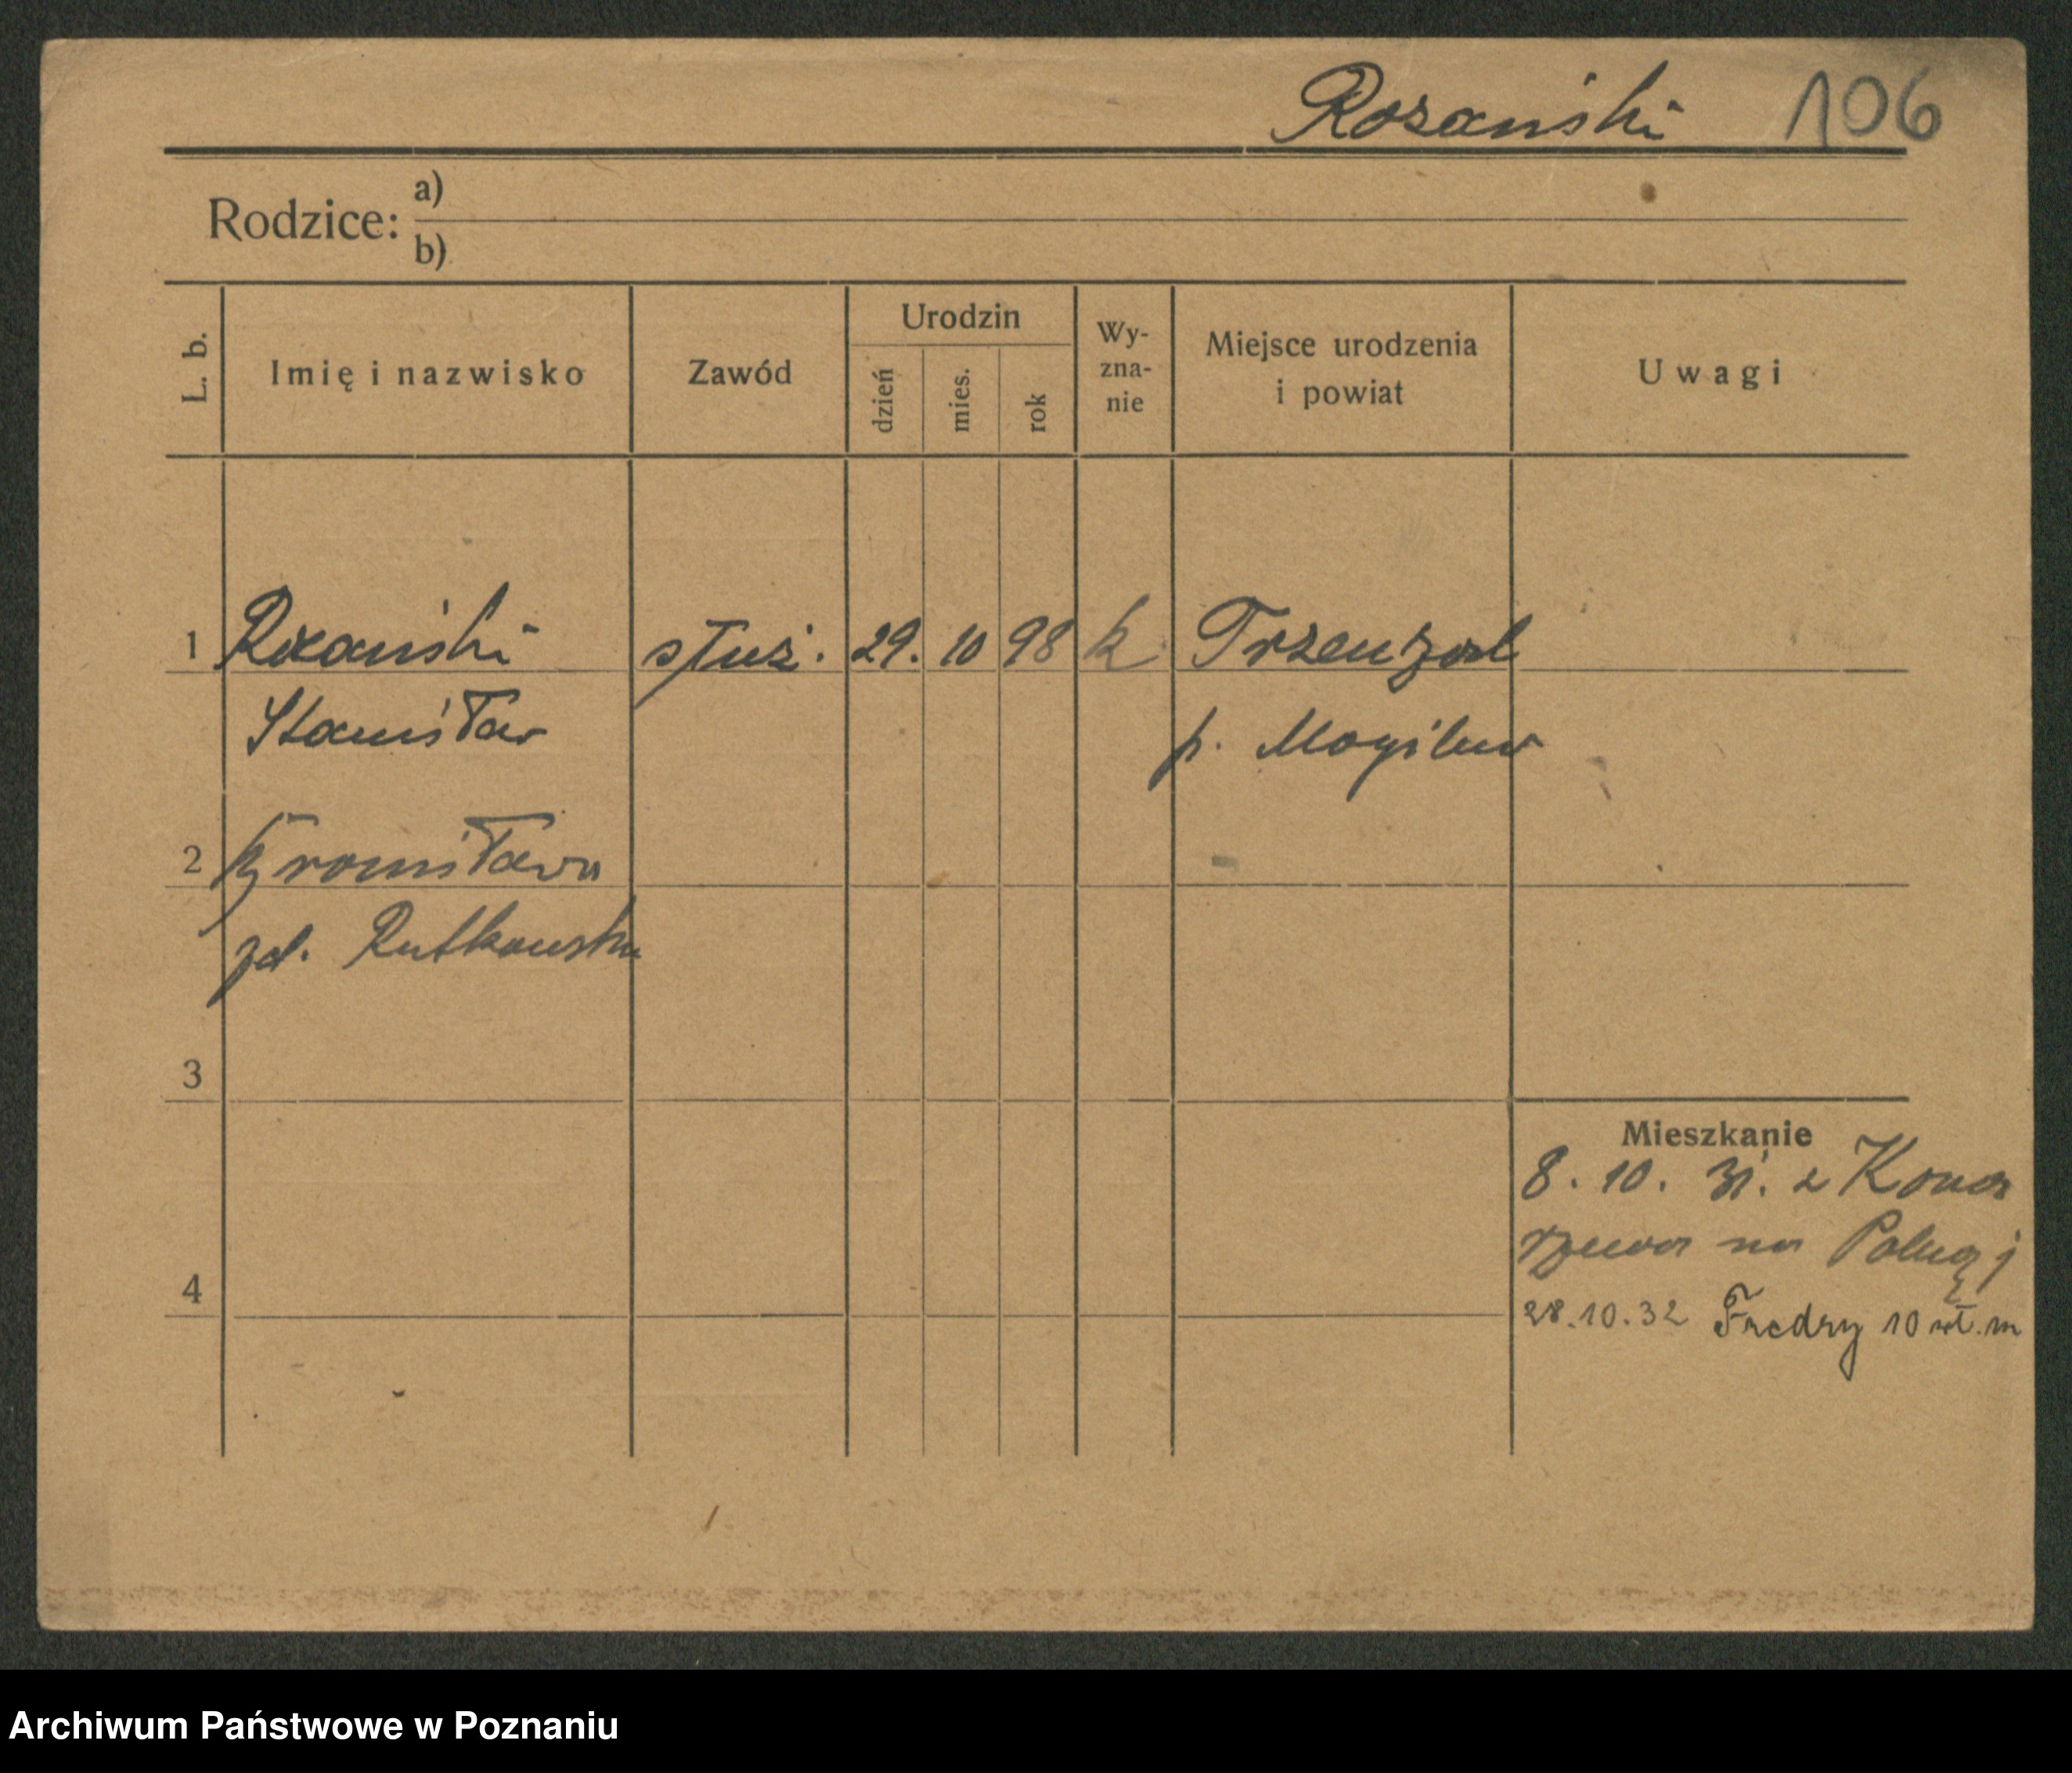 Rozański 106
Rodzice: a)
b)
L. b. Imię i nazwisko Zawód Urodzin dzień mies. rok Wy-zna-nie Miejsce urodzenia i powiat Uwagi
1 Rozański służ. 29. 10 98 k Trzemżal
Stanisław p. Mogilno
2 Bronisława
zd. Rutkowska
3
Mieszkanie
8. 10. 31. z Kona
rzewa na
4
28.10.32 Fredry 10 wł. m
Archiwum Państwowe w Poznaniu